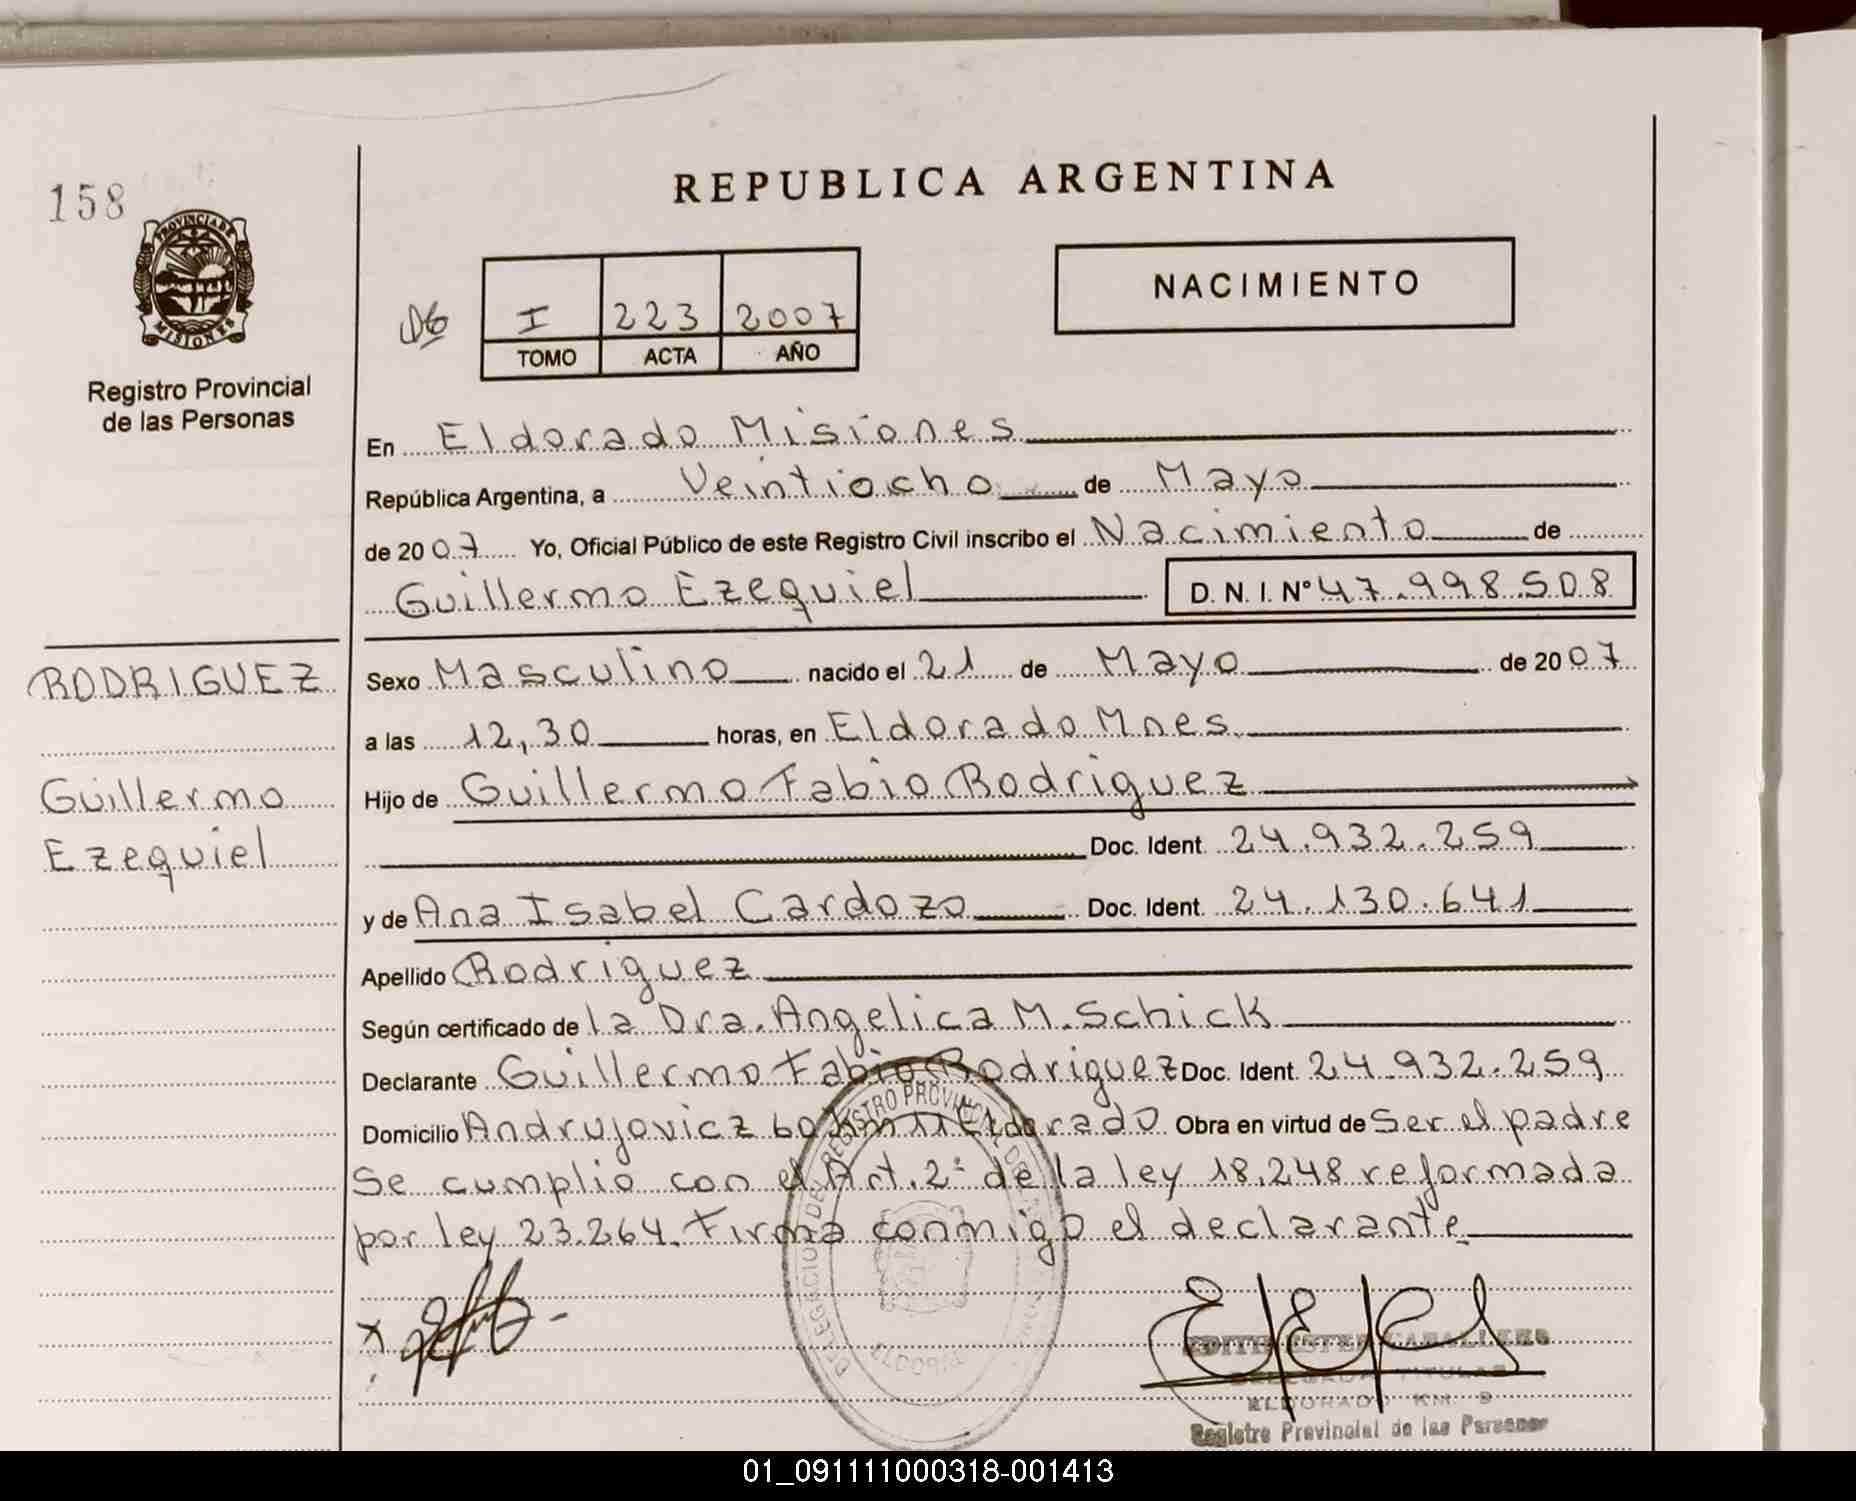 158
REPUBLICA ARGENTINA
PROVINCIA DE
MISIONES
Registro Provincial
de las Personas
I 223 2007
TOMO ACTA AÑO
NACIMIENTO
En Eldorado Misiones
República Argentina, a Veintiocho de Mayo
de 2007 Yo, Oficial Público de este Registro Civil inscribo el Nacimiento de
Guillermo Ezequiel D.N.I. N° 47.998.508
RODRIGUEZ
Guillermo
Ezequiel
Sexo Masculino nacido el 21 de Mayo de 2007
a las 12,30 horas, en Eldorado Mnes.
Hijo de Guillermo Fabio Rodriguez
Doc. Ident. 24.932.259
y de Ana Isabel Cardozo Doc. Ident. 24.130.641
Apellido Rodriguez
Según certificado de la Dra. Angelica M. Schick
Declarante Guillermo Fabio Rodriguez Doc. Ident. 24.932.259
Domicilio Andrujovicz 60 Km 11 Eldorado Obra en virtud de Ser el padre
Se cumplio con el Art. 2° de la ley 18.248 reformada
por ley 23.264. Firma conmigo el declarante
EDITH ESTER CABALLERO
DELEGADA TITULAR
ELDORADO KM. 9
Registro Provincial de las Personas
01_091111000318-001413